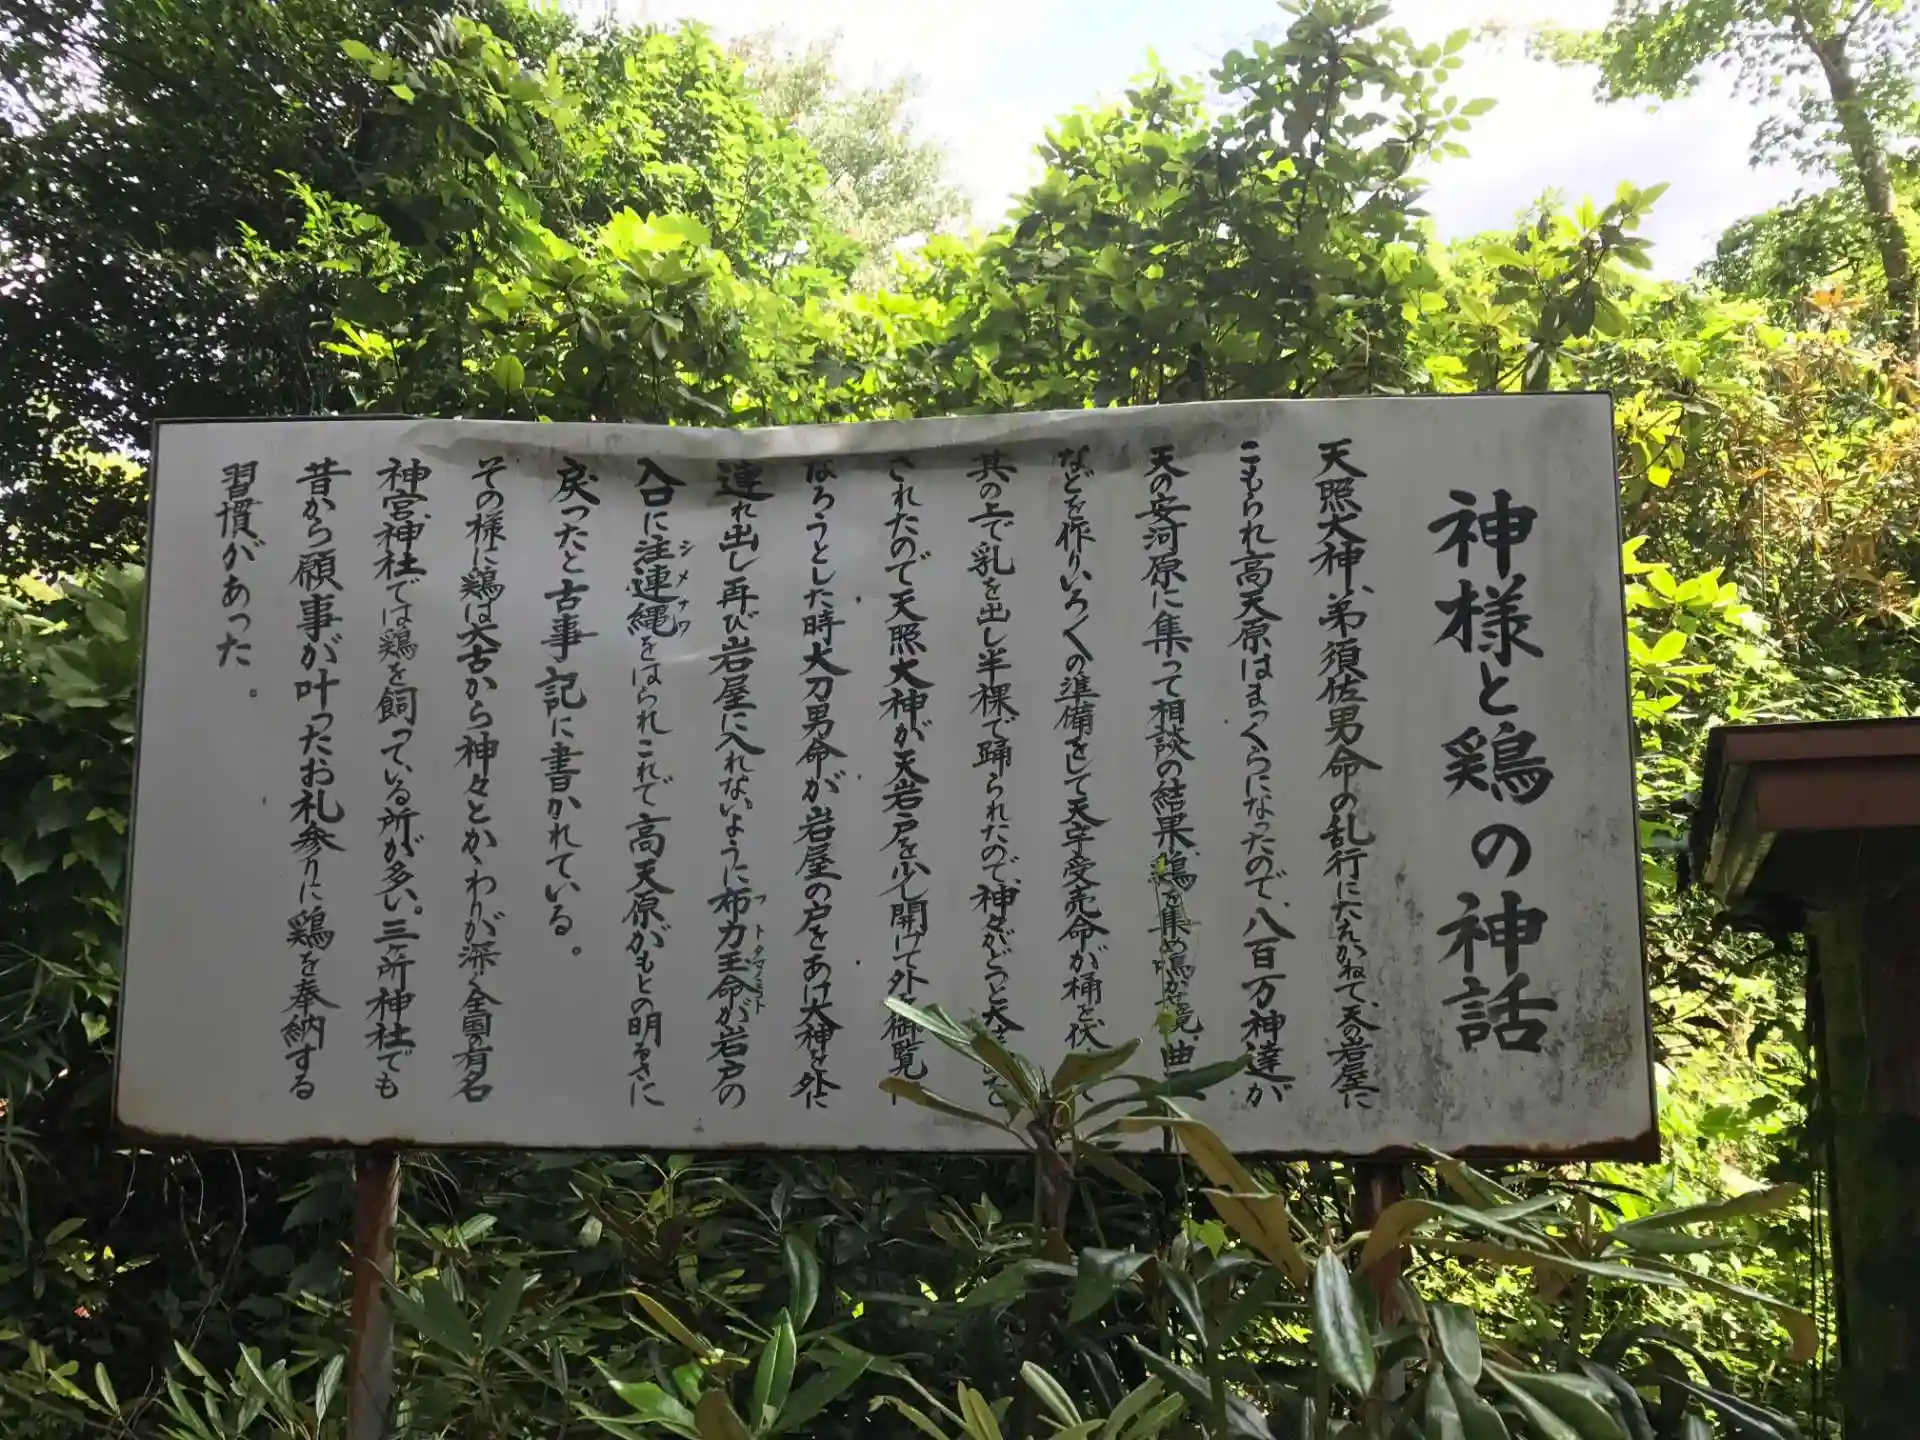 神様と鶏の神話
天照大神、弟須佐男命の乱行にたえかねて、天の岩屋に
こもられ高天原はまっくらになったので、八百万神達が
天の安河原に集って相談の結果、鶏を集め鳴かせ鏡、曲
などを作りいろ〱の準備をして天宇受売命が桶を伏
其の上で乳を出し半裸で踊られたので、神々がどっと大
されたので天照大神が天岩戸を少し開けて外を御覧に
なろうとした時大刀男命が岩屋の戸をあけ大神を外に
連れ出し再び岩屋に入れないように布刀玉命が岩戸の
フトタマノミコト
入口に注連縄をはられこれで高天原がもとの明るさに
シメナワ
戻ったと古事記に書かれている。
その様に鶏は太古から神々とかゝわりが深く全国の有名
神宮、神社では鶏を飼っている所が多い。三ヶ所神社でも
昔から願事が叶ったお礼参りに鶏を奉納する
習慣があった。